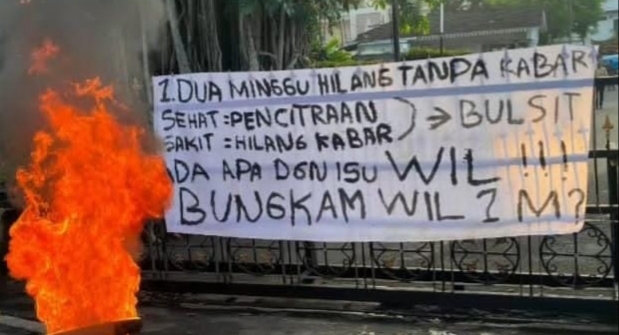 1. DUA MINGGU HILANG TANPA KABAR
SEHAT = PENCITRAAN
SAKIT = HILANG KABAR
) → BULSIT
ADA APA DGN ISU WIL !!!
BUNGKAM WIL 1 M?